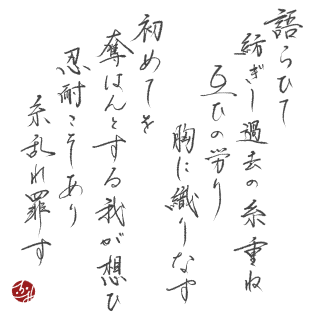 語らひて
紡ぎし過去の糸重ね
互ひの労り
胸に織りなす
初めてを
奪はんとする我が想ひ
忍耐こそあり
糸乱れ罪す